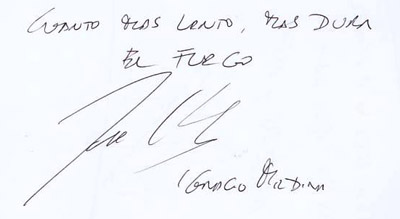 CUANTO MAS LENTO, MAS DURA
EL FUEGO
IGNACIO MEDINA